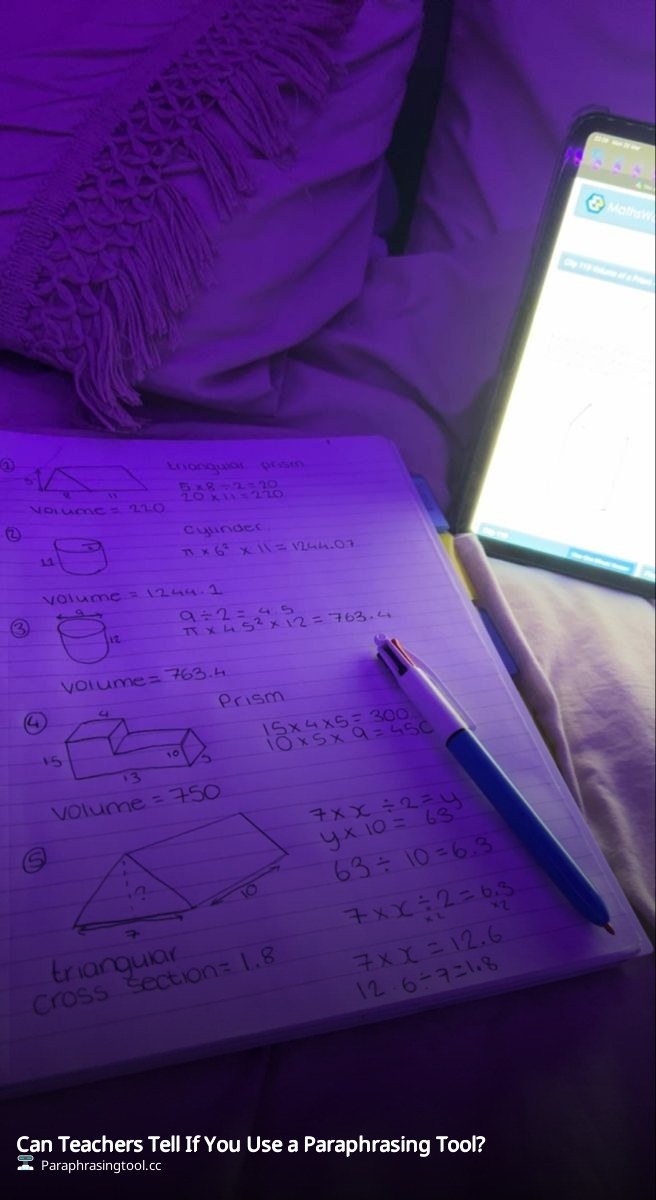 ①
5
8
11
triangular prism
5 x 8 ÷ 2 = 20
20 x 11 = 220
volume = 220
②
11
cylinder
π x 6² x 11 = 1244.07
volume = 1244.1
③
9
12
9 ÷ 2 = 4.5
π x 4.5² x 12 = 763.4
volume = 763.4
④
Prism
4
15
10
5
13
15 x 4 x 5 = 300
10 x 5 x 9 = 450
volume = 750
⑤
?
10
7
7 x x ÷ 2 = y
y x 10 = 63
63 ÷ 10 = 6.3
7 x x ÷ 2 = 6.3
x2 x2
7 x x = 12.6
12.6 ÷ 7 = 1.8
triangular
cross section = 1.8
Can Teachers Tell If You Use a Paraphrasing Tool?
Paraphrasingtool.cc